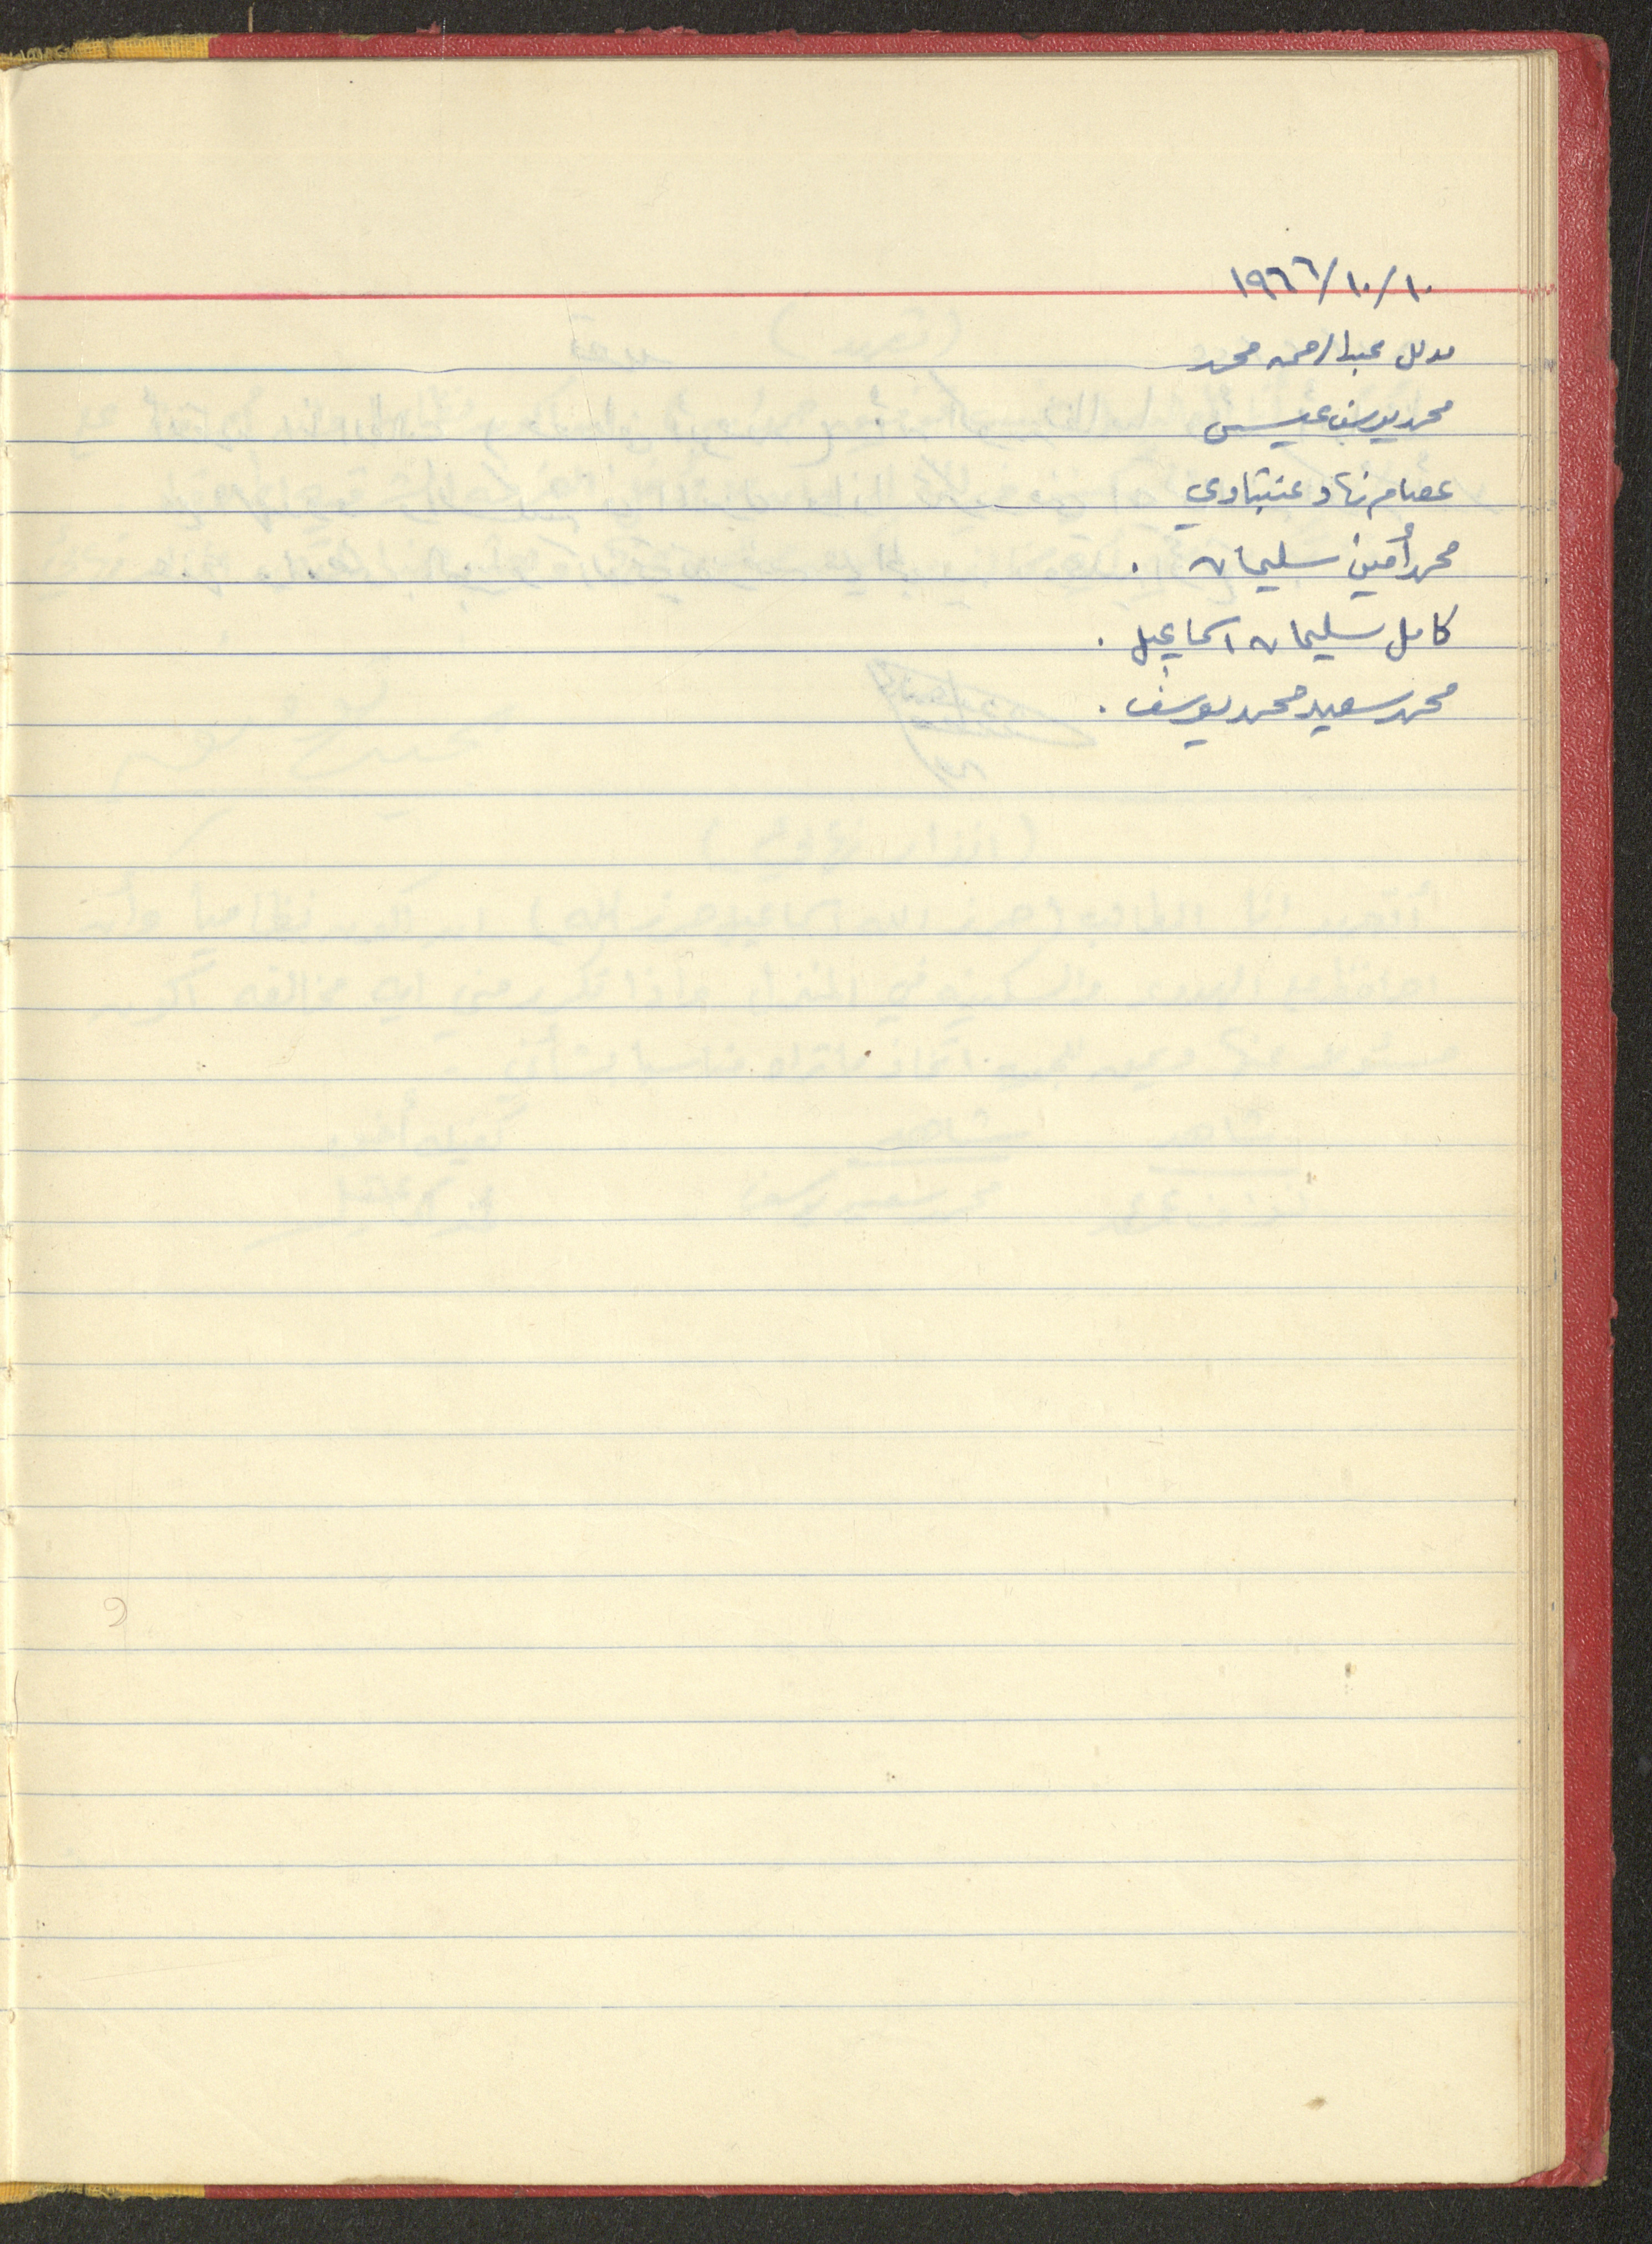 ١٩٦٦/١٠/١٠
عبدالرحمن محمد
محمد يوسف عيسى
عصام نهاد عنبتاوي
محمد أمين سليمان .
كامل سليمان اسماعيل .
محمد سعيد محمد يوسف .